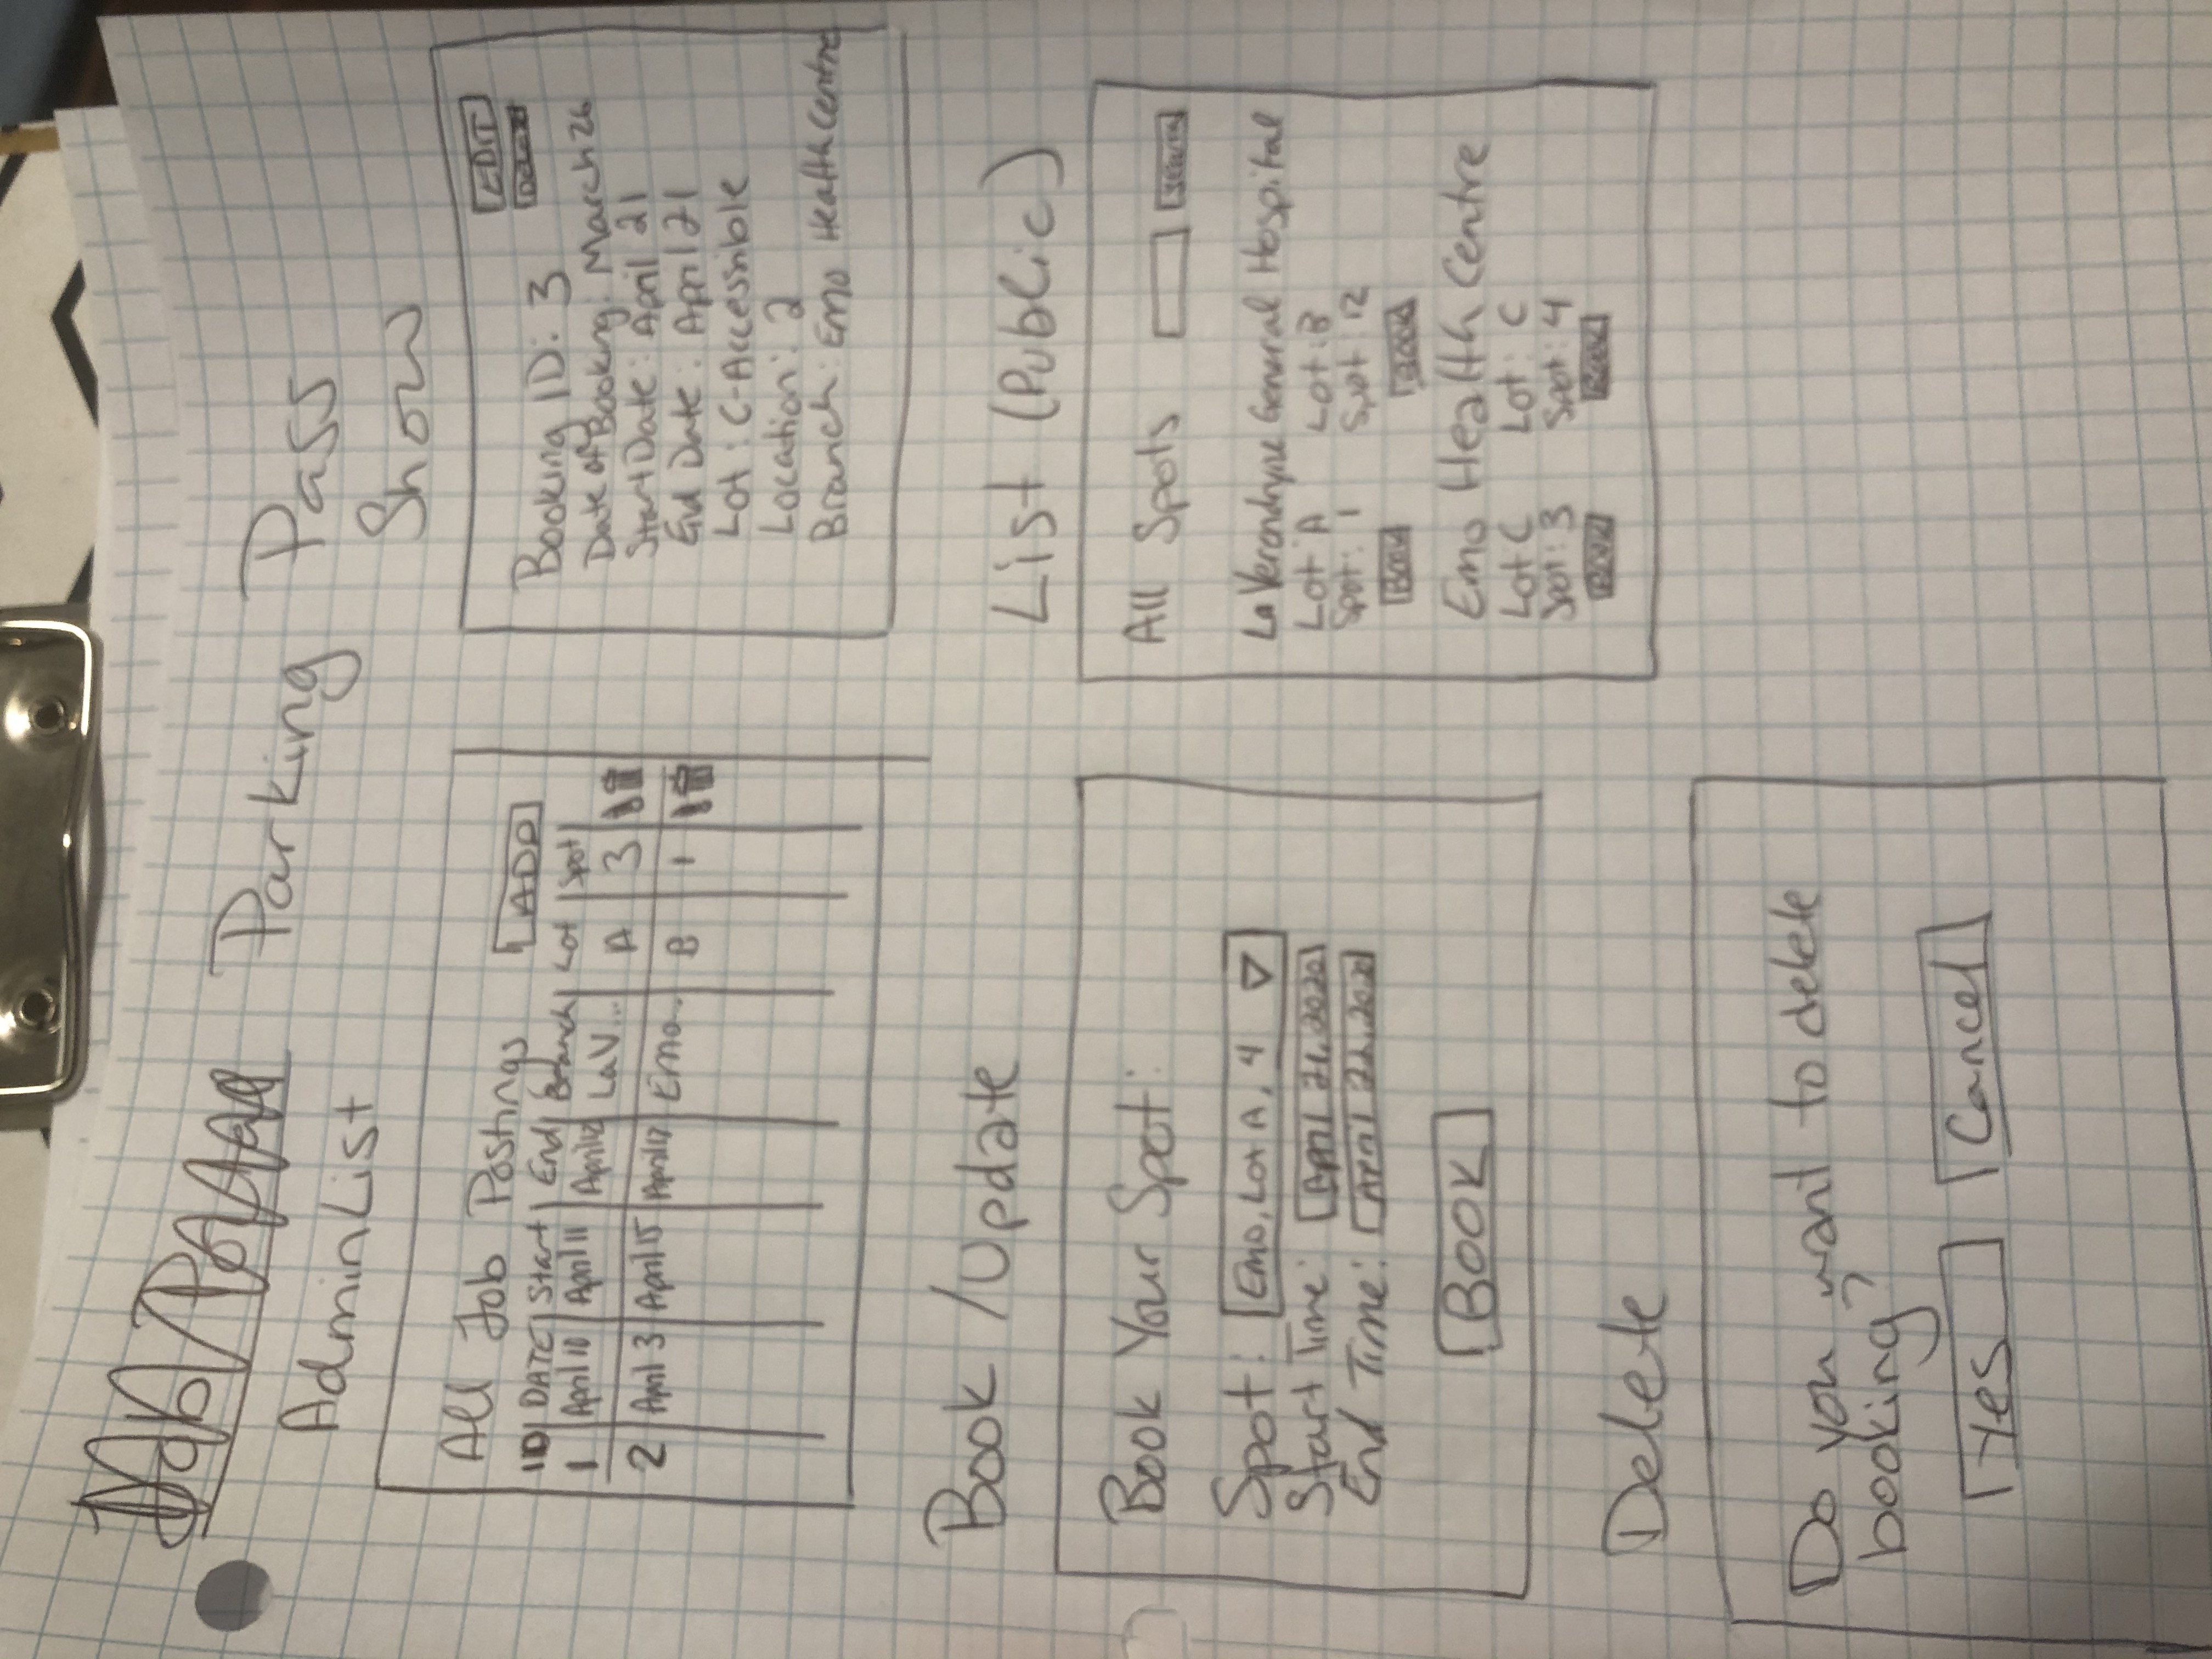 Parking Pass
AdminList
All Job Postings ADD
ID DATE Start End Branch Lot Spot
1 April 10 April 11 April 12 LaV... A 3
2 April 3 April 15 April 17 Emo.. B 1
Show
EDIT
Delete
Booking ID: 3
Date of Booking: March 26
Start Date: April 21
End Date: April 21
Lot: C-Accessible
Location: 2
Branch: Emo Health Centre
Book /Update
Book Your Spot:
Spot: Emo, Lot A, 4
Start Time: April 21, 2020
End Time: April 22, 2020
BOOK
List (Public)
All Spots Search
La Verendryne General Hospital
Lot A Lot: B
Spot: 1 Spot: 12
BOOK BOOK
Emo Health Centre
Lot C Lot: C
Spot: 3 Spot: 4
BOOK BOOK
Delete
Do you want to delete
booking?
Yes Cancel